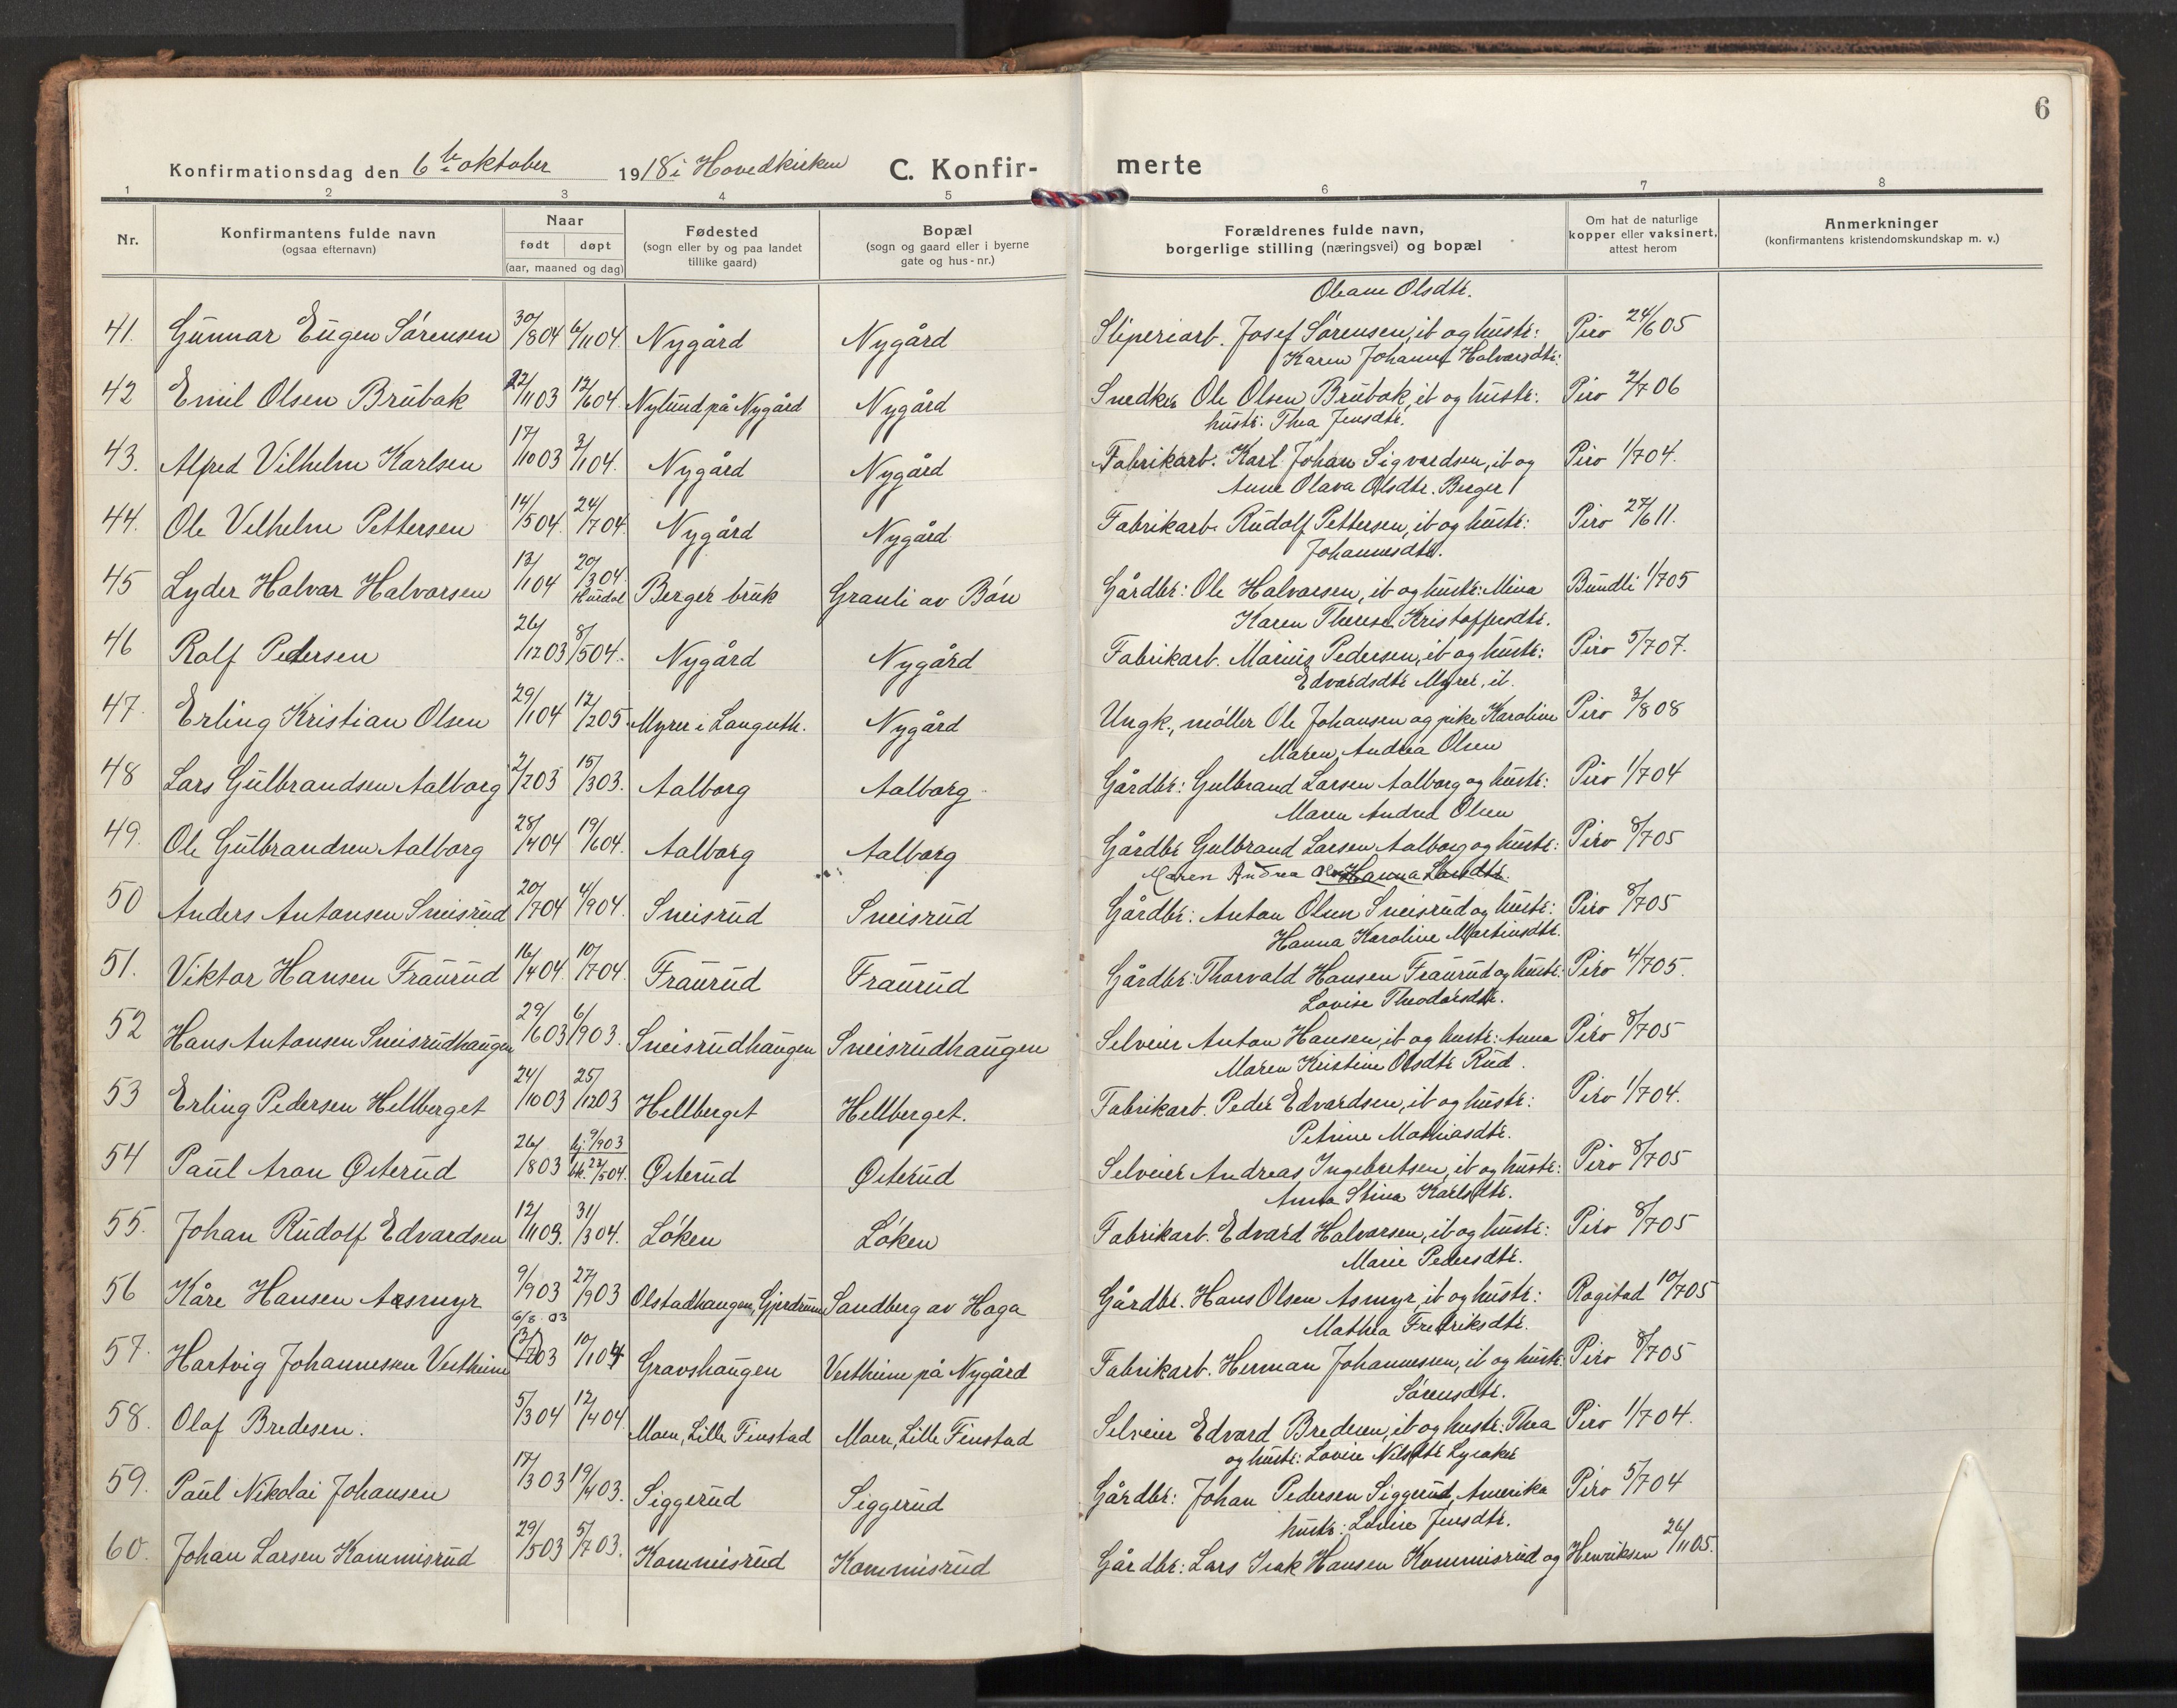 6
Konfirmationsdag den 6te oktober 1918 i Hovedkirken C. Konfir- merte
1 2 3 4 5 6 7 8
Nr.
Konfirmantens fulde navn
(ogsaa efternavn)
Naar
født døpt
(aar, maaned og dag)
Fødested
(sogn eller by og paa landet
tillike gaard)
Bopæl
(sogn og gaard eller i byerne
gate og hus-nr.)
Forældrenes fulde navn,
borgerlige stilling (næringsvei) og bopæl
Om hat de naturlige
kopper eller vaksinert,
attest herom
Anmerkninger
(konfirmantens kristendomskundskap m. v.)
Oleane Olsdtr.
41. Gunnar Eugen Sørensen 30/804 6/1104. Nygård Nygård Sliperiarb. Josef Sørensen, ib og hustr: Piro 24/605
Karen Johanne Halvorsdtr:
42 Emil Olsen Brubak 22/1103 12/604. Nylund på Nygård Nygård Snedker Ole Olsen Brubak, ib og hustr: Piro 2/706
hustr: Thea Jensdtr.
43. Alfred Vilhelm Karlsen 17/1003 3/104. Nygård Nygård Fabrikarb. Karl Johan Sigvardsen, ib og Piro 1/704.
Anne Olava Olsdtr. Berger
44. Ole Vilhelm Pettersen 14/504 24/704. Nygård Nygård Fabrikarb. Rudolf Pettersen, ib og hustr: Piro 27/611.
Johannesdtr.
45 Lyder Halvar Halvorsen 13/104 20/304. Hurdal Berger bruk Granli av Bøn Gårdbr: Ole Halvorsen, ib og hustr: Mina Bundli 1/705
Karen Therese Kristoffersdtr.
46 Rolf Pedersen 26/1203 8/504. Nygård Nygård Fabrikarb. Marius Pedersen, ib og hustr: Piro 5/707.
Edvardsdtr Myrer, ib.
47. Erling Kristian Olsen 29/104 12/205. Myrer i Languth. Nygård Ungk., møller Ole Johansen og pike Karoline Piro 3/808
Maren Andrea Olsen
48 Lars Gulbrandsen Aalborg 2/203 15/303. Aalborg Aalborg Gårdbr: Gulbrand Larsen Aalborg og hustr: Piro 1/704
Maren Andrea Olsen
49. Ole Gulbrandsen Aalborg 28/404 19/604. Aalborg Aalborg Gårdbr Gulbrand Larsen Aalborg og hustr: Piro 8/705
Maren Andrea Hanna Larsdtr.
50 Anders Antonsen Sneisrud 20/704 4/904. Sneisrud Sneisrud Gårdbr: Anton Olsen Sneisrud og hustr: Piro 8/705
Hanna Karoline Martinsdtr.
51. Viktor Hansen Fraurud 16/404. 10/704. Fraurud Fraurud Gårdbr: Thorvald Hansen Fraurud og hustr: Piro 4/705.
Lovise Theodorsdtr.
52 Hans Antonsen Sneisrudhaugen 29/603 6/903. Sneisrudhaugen Sneisrudhaugen Selveier Anton Hansen, ib og hustr: Anna Piro 8/705
Maren Kristine Olsdtr Rud.
53 Erling Pedersen Hellberget 24/1003 25/1203 Hellberget Hellberget. Fabrikarb. Peder Edvardsen, ib og hustr: Piro 1/704.
Petrine Mathiasdtr.
54 Paul Aron Østerud 26/803 hj. 9/903 bk. 22/504. Østerud Østerud Selveier Andreas Ingebretsen, ib og hustr: Piro 8/705
Anna Stina Karlsdtr.
55. Johan Rudolf Edvardsen 12/1103. 31/304. Løken Løken Fabrikarb. Edvard Halvorsen, ib og hustr: Piro 8/705
Marie Pedersdtr.
56 Kåre Hansen Aasmyr 9/903 27/903 Olstadhaugen, Gjerdrum Sandberg av Haga Gårdbr. Hans Olsen Asmyr, ib og hustr: Rogstad 10/705
6/8 03
Mathea Fredriksdtr.
57. Hartvig Johannessen Vestheim (3/1203 10/104 Gravshaugen Vestheim på Nygård Fabrikarb. Herman Johannessen, ib og hustr. Piro 8/705
Sørensdtr.
58. Olaf Bredesen. 5/304 12/404 Moen, Lille Finstad Moen, Lille Finstad Selveier Edvard Bredesen, ib og hustr: Thea Piro 1/704.
og hustr: Lovise Nilsdtr Lysaker
59. Paul Nikolai Johansen 17/303 19/403. Siggerud Siggerud Gårdbr: Johan Pedersen Siggerud, Amerika Piro 5/704
hustr: Lovise Jensdtr.
60. Johan Larsen Kommisrud 29/503 5/703. Kommisrud Kommisrud Gårdbr: Lars Isak Hansen Kommisrud og Henriksen 26/1105.